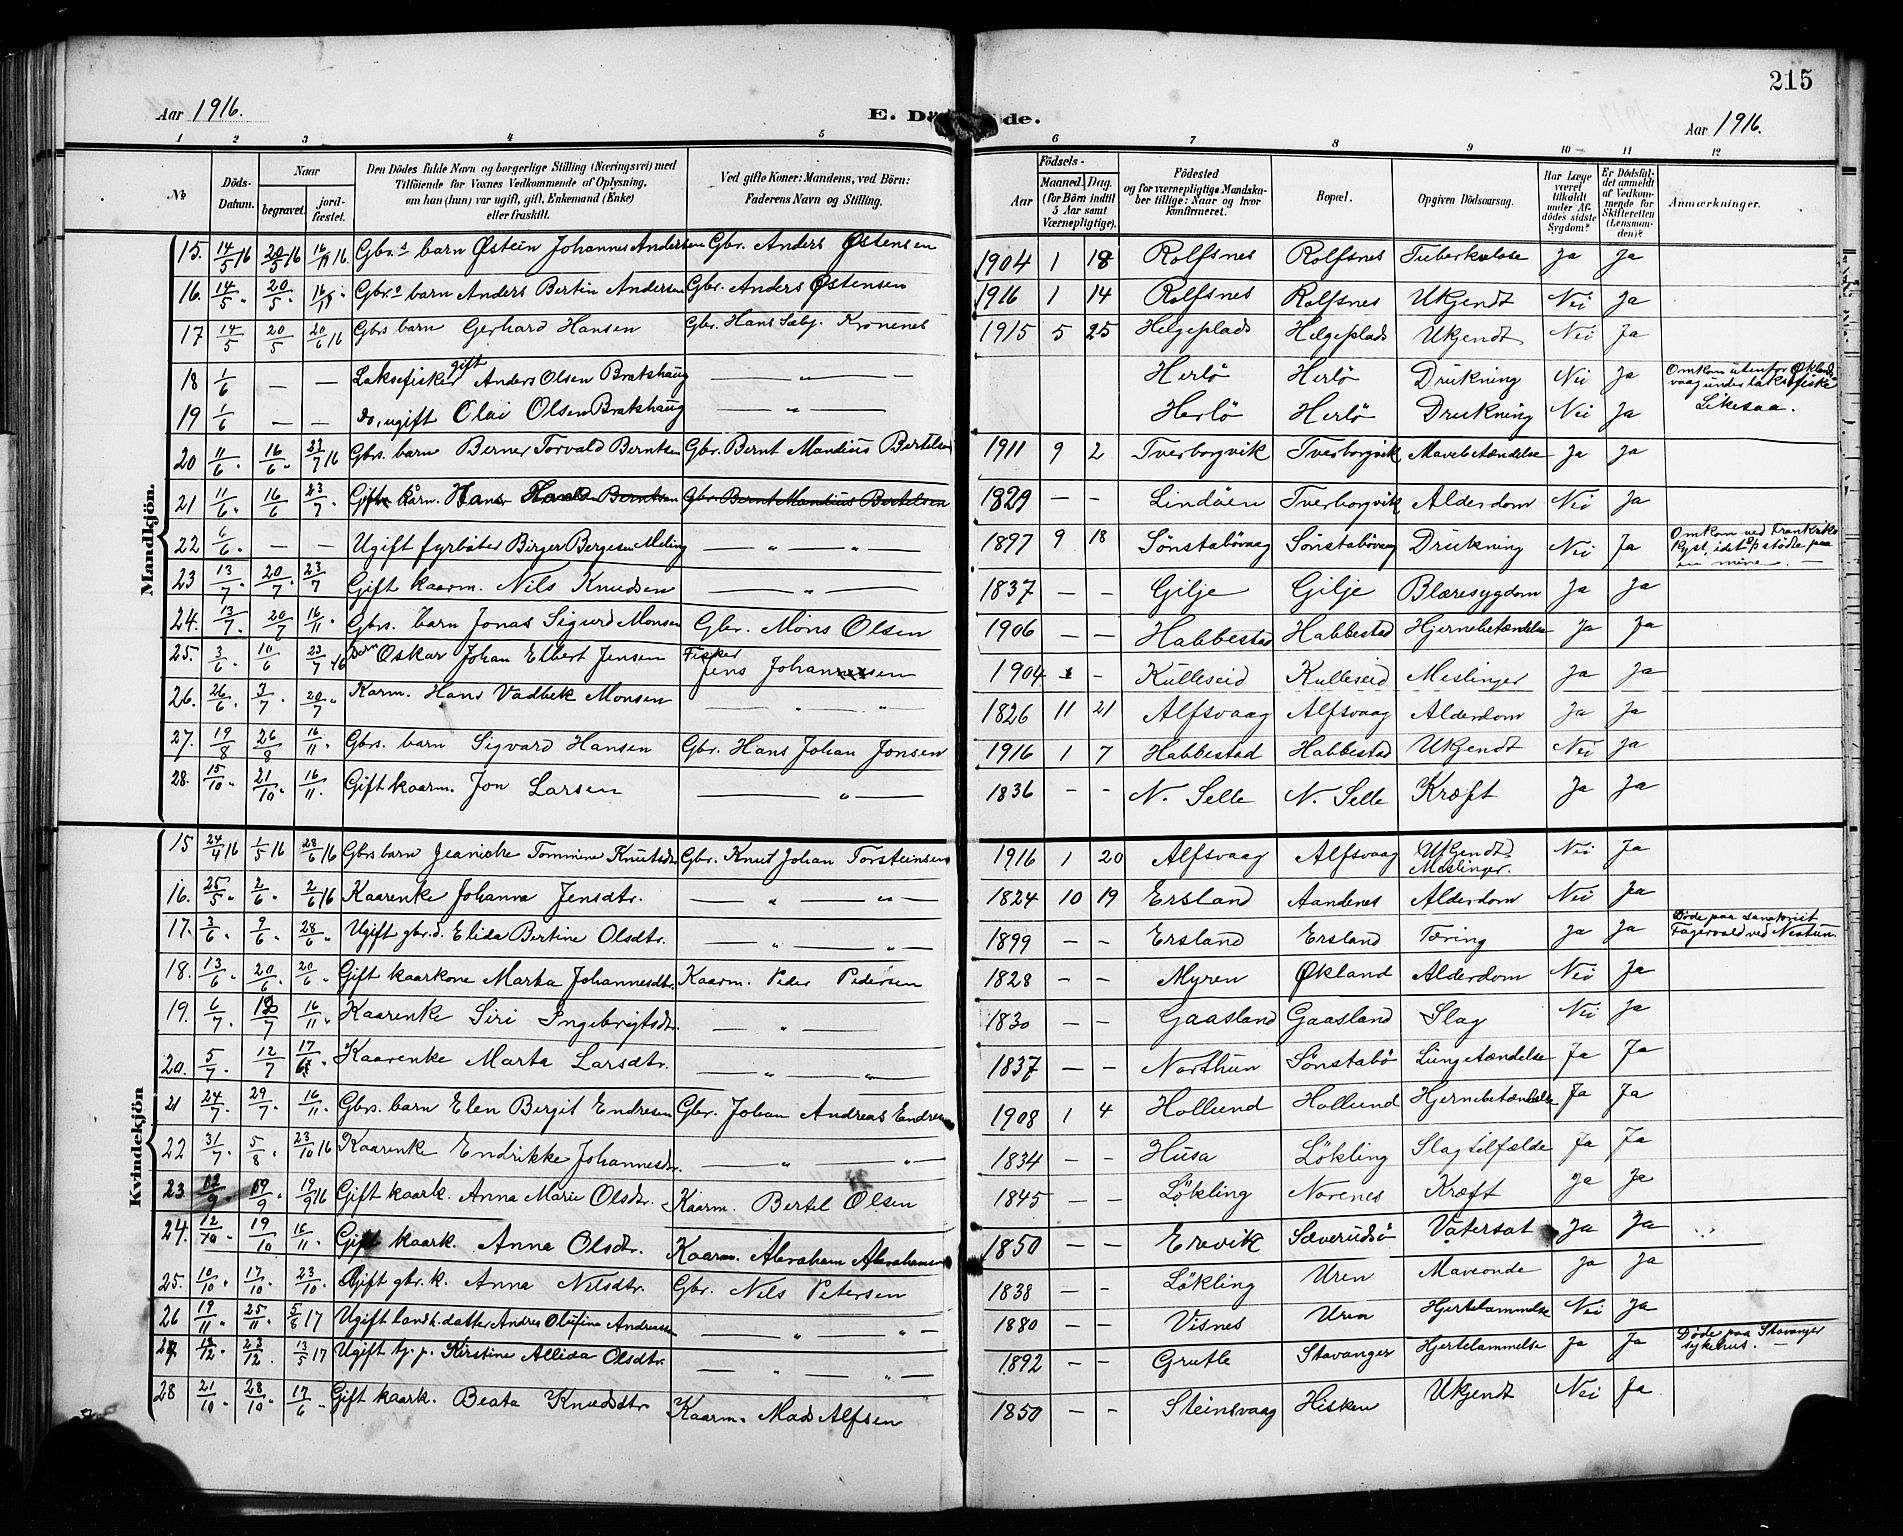 215
Aar 1916.
E. Dö de.
Aar 1916.
1 2 3 4 5 6 7 8 9 10 11 12
№ Döds-Datum. Naar begravet. jord-fæstet. Den Dödes fulde Navn og borgerlige Stilling (Næringsvei) med Tilföiende for Voxnes Vedkommende af Oplysning, om han (hun) var ugift, gift, Enkemand (Enke) eller fraskilt. Ved gifte Koner: Mandens, ved Börn: Faderens Navn og Stilling. Födsels- Aar Maaned. Dag. (for Börn indtil 5 Aar samt Værnepligtige). Födested og for værnepligtige Mandskaber tillige: Naar og hvor konfirmeret. Bopæl. Opgiven Dödsaarsag. Har Læge været tilkaldt under Afdödes sidste Sygdom? Er Dödsfaldet anmeldt af Vedkommende for Skifteretten (Lensmanden)? Anmærkninger.
Mandkjön.
15. 14/5 16 20/5 16 16/11 16 Gbrs barn Østein Johannes Andersen Gbr. Anders Østensen 1904 1 18 Rolfsnes Rolfsnes Tuberkulose Ja Ja
16. 14/5 " 20/5 " 16/11 " Gbrs barn Anders Bertin Andersen Gbr. Anders Østensen 1916 1 14 Rolfsnes Rolfsnes Ukjendt Nei Ja
17 14/5 20/5 20/6 16 Gbrs barn Gerhard Hansen Gbr. Hans Sæbj. Kronenes 1915 5 25 Helgeplads Helgeplads Ukjendt Nei Ja
18 1/6 — — Laksefisker gift Anders Olsen Bratshaug — " — Herlö Herlö Drukning Nei Ja Omkom utenfor Øklandsvaag under laksefiske
19 1/6 — — do, ugift Olai Olsen Bratshaug — " — Herlö Herlö Drukning Nei Ja Likesaa.
20 11/6 " 16/6 " 23/7 16 Gbrs. barn Berner Torvald Berntsen Gbr. Bernt Mandius Bertelsen 1911 9 2 Tverborgvik Tverborgvik Mavebetændelse Ja Ja
21 11/6 " 16/6 23/7 " Gift kårm. Hans Berntsen Gbr. Bernt Mandius Bertelsen 1829 — — Lindöen Tverborgvik Alderdom Nei Ja
22 6/6 " — — Ugift fyrböter Birger Bergesen Meling — " — " — 1897 9 18 Sönstabövaag Sönstabövaag Drukning Nei Ja Omkom ved Frankriks Kyst, idet d/s stödte paa en mine. —
23 13/7 " 20/7 " 23/7 Gift kaarm. Nils Knudsen — " — 1837 — — Gilje Gilje Blæresygdom Ja Ja
24. 13/7 " 20/7 16/11 " Gbrs. barn Jonas Sigurd Monsen Gbr. Möns Olsen 1906 — — Habbestad Habbestad Hjernebetændelse Ja Ja
25. 3/6 10/6 23/7 16 Barn Oskar Johan Elbert Jensen Fisker Jens Johannessen 1904 - - Kulleseid Kulleseid Meslinger Ja Ja
26. 26/6 " 3/7 " 20/7 " Karm. Hans Vadbek Monsen — " — " — 1826 11 21 Alfsvaag Alfsvaag Alderdom Ja Ja
27. 19/8 26/8 16/11 " Gbrs. barn Sigvard Hansen Gbr. Hans Johan Jonsen 1916 1 7 Habbestad Habbestad Ukjendt Nei Ja
28. 15/10 " 21/10 " 16/11 " Gift kaarm. Jon Larsen — " — 1836 - - N. Selle N. Selle Kræft Ja Ja
Kvindekjön
15 24/4 16 1/5 16 28/6 16 Gbrs barn Jeanicke Tommine Knutsdtr. Gbr. Knut Johan Torsteinsen 1916 1 20 Alfsvaag Alfsvaag Ukjendt Meslinger. Nei Ja
16. 25/5 " 2/6 " 2/6 16 Kaarenke Johanna Jensdtr. — " — " — 1824 10 19 Ersland Aandenes Alderdom Nei Ja
17. 3/6 " 9/6 " 28/6 " Ugift gbr.d. Elida Bertine Olsdtr. — " — " — 1899 — — Ersland Ersland Tæring Ja Ja Døde paa sanatoriet Fagervold ved Nestun
18. 13/6 " 20/6 " 20/6 " Gift kaarkone Marta Johannesdtr. Kaarm. Peder Pedersen 1828 — — Myren Økland Alderdom Nei Ja
19. 6/7 " 13/7 16/11 " Kaarenke Siri Ingebrigtsdtr. — " — 1830 — — Gaasland Gaasland Slag Nei Ja
20. 5/7 " 12/7 17/6 " Kaarenke Marta Larsdtr. — " — " — 1837 — — Northun Sönstabö Lungetændelse Ja Ja
21 24/7 " 29/7 " 16/11 " Gbrs. barn Elen Bergit Endresen Gbr. Johan Andreas Endresen 1908 1 4 Hollund Hollund Hjernebetændelse Ja Ja
22 31/7 " 5/8 " 23/10 16 Kaarenke Endrikke Johannesdtr. — " — " — 1834 — — Husa Lökling Slagtilfælde Ja Ja
23 /9 " /9 " 19/9 16 Gift kaark. Anna Marie Olsdtr. Kaarm. Bertel Olsen 1845 — — Lökling Norenes Kræft Ja Ja
24. 12/10 " 19/10 " 16/11 " Gift kaark. Anna Olsdtr. Kaarm. Abraham Abrahamsen 1850 — — Ervik Sæverudsö Vatersot Ja Ja
25. 10/10 " 17/10 " 23/10 " Gift gbr. k. Anna Nilsdtr. Gbr. Nils Petersen 1838 — — Lökling Uren Maveonde Ja Ja
26 19/11 " 25/11 " 5/8 17 Ugift landh. datter Andrea Olufine Andreassen — " — " — 1880 — — Visnes Uren Hjertelammelse Nei Ja
27. /12 " 23/12 " 13/5 17 Ugift tj. p. Kirstine Allida Olsdtr. — " — " — 1892 — — Grutle Stavanger Hjertelammelse Ja Ja Døde paa Stavanger sykehus. —
28 21/10 " 28/10 " 17/6 " Gift kaark. Beata Knudsdtr. Kaarm. Mads Alfsen 1850 — — Steinsvaag Hisken Ukjendt Nei Ja